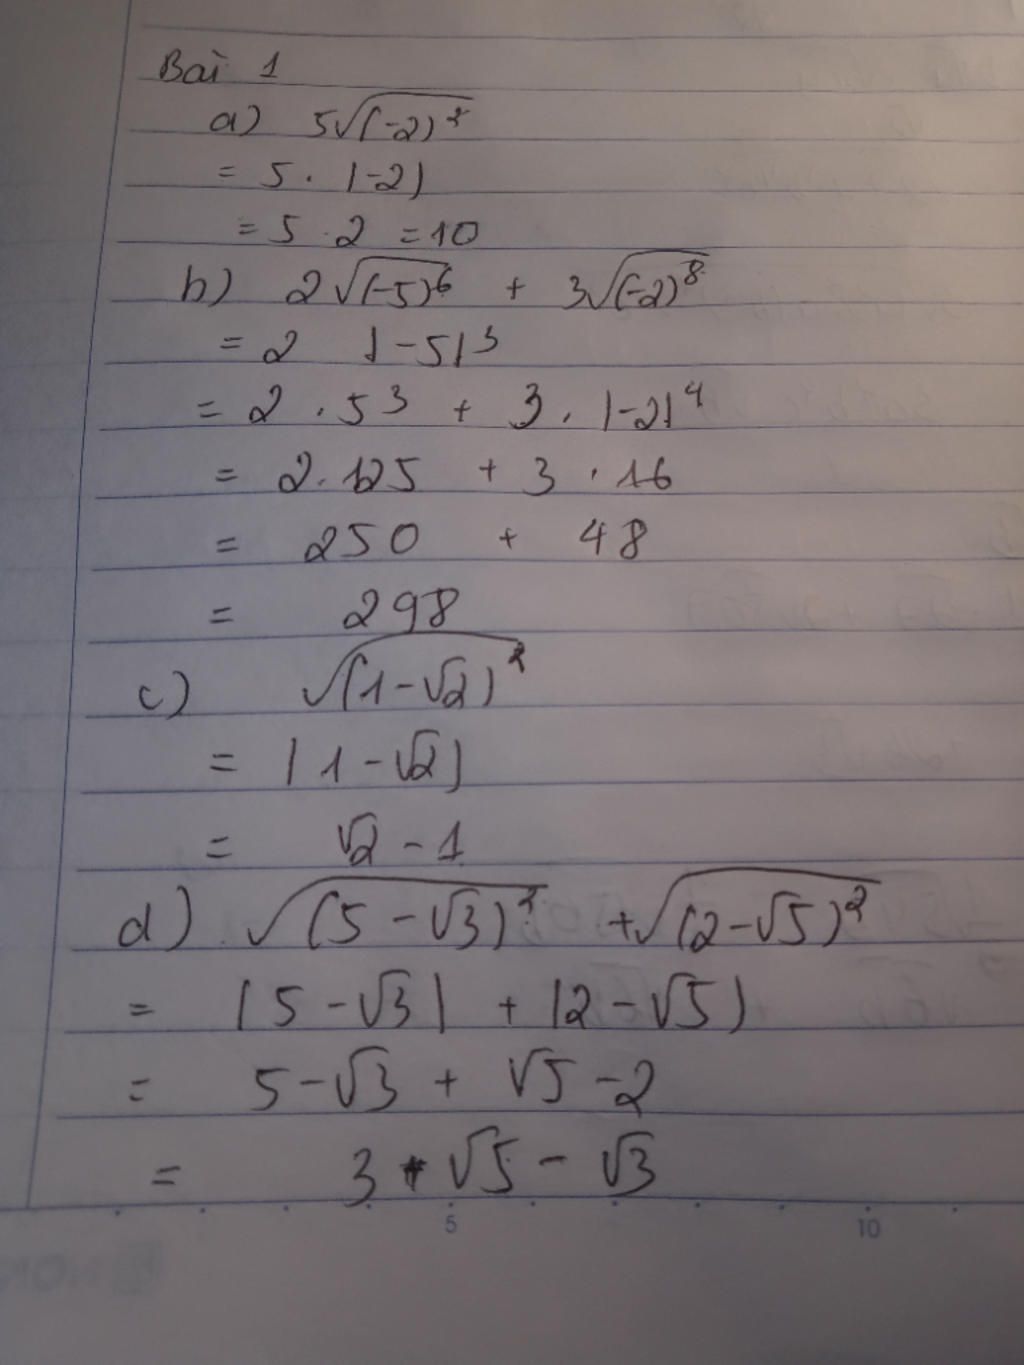 Bài 1
a) 5√(-2)²
= 5 . |-2|
= 5 . 2 = 10
b) 2√(-5)⁶ + 3√(-2)⁸
= 2 |-5|³
= 2 . 5³ + 3 . |-2|⁴
= 2.125 + 3 . 16
= 250 + 48
= 298
c) √(1-√2)²
= |1-√2|
= √2 - 1
d) √(5-√3)² + √(2-√5)²
= |5-√3| + |2-√5|
= 5-√3 + √5-2
= 3 + √5 - √3
5 10